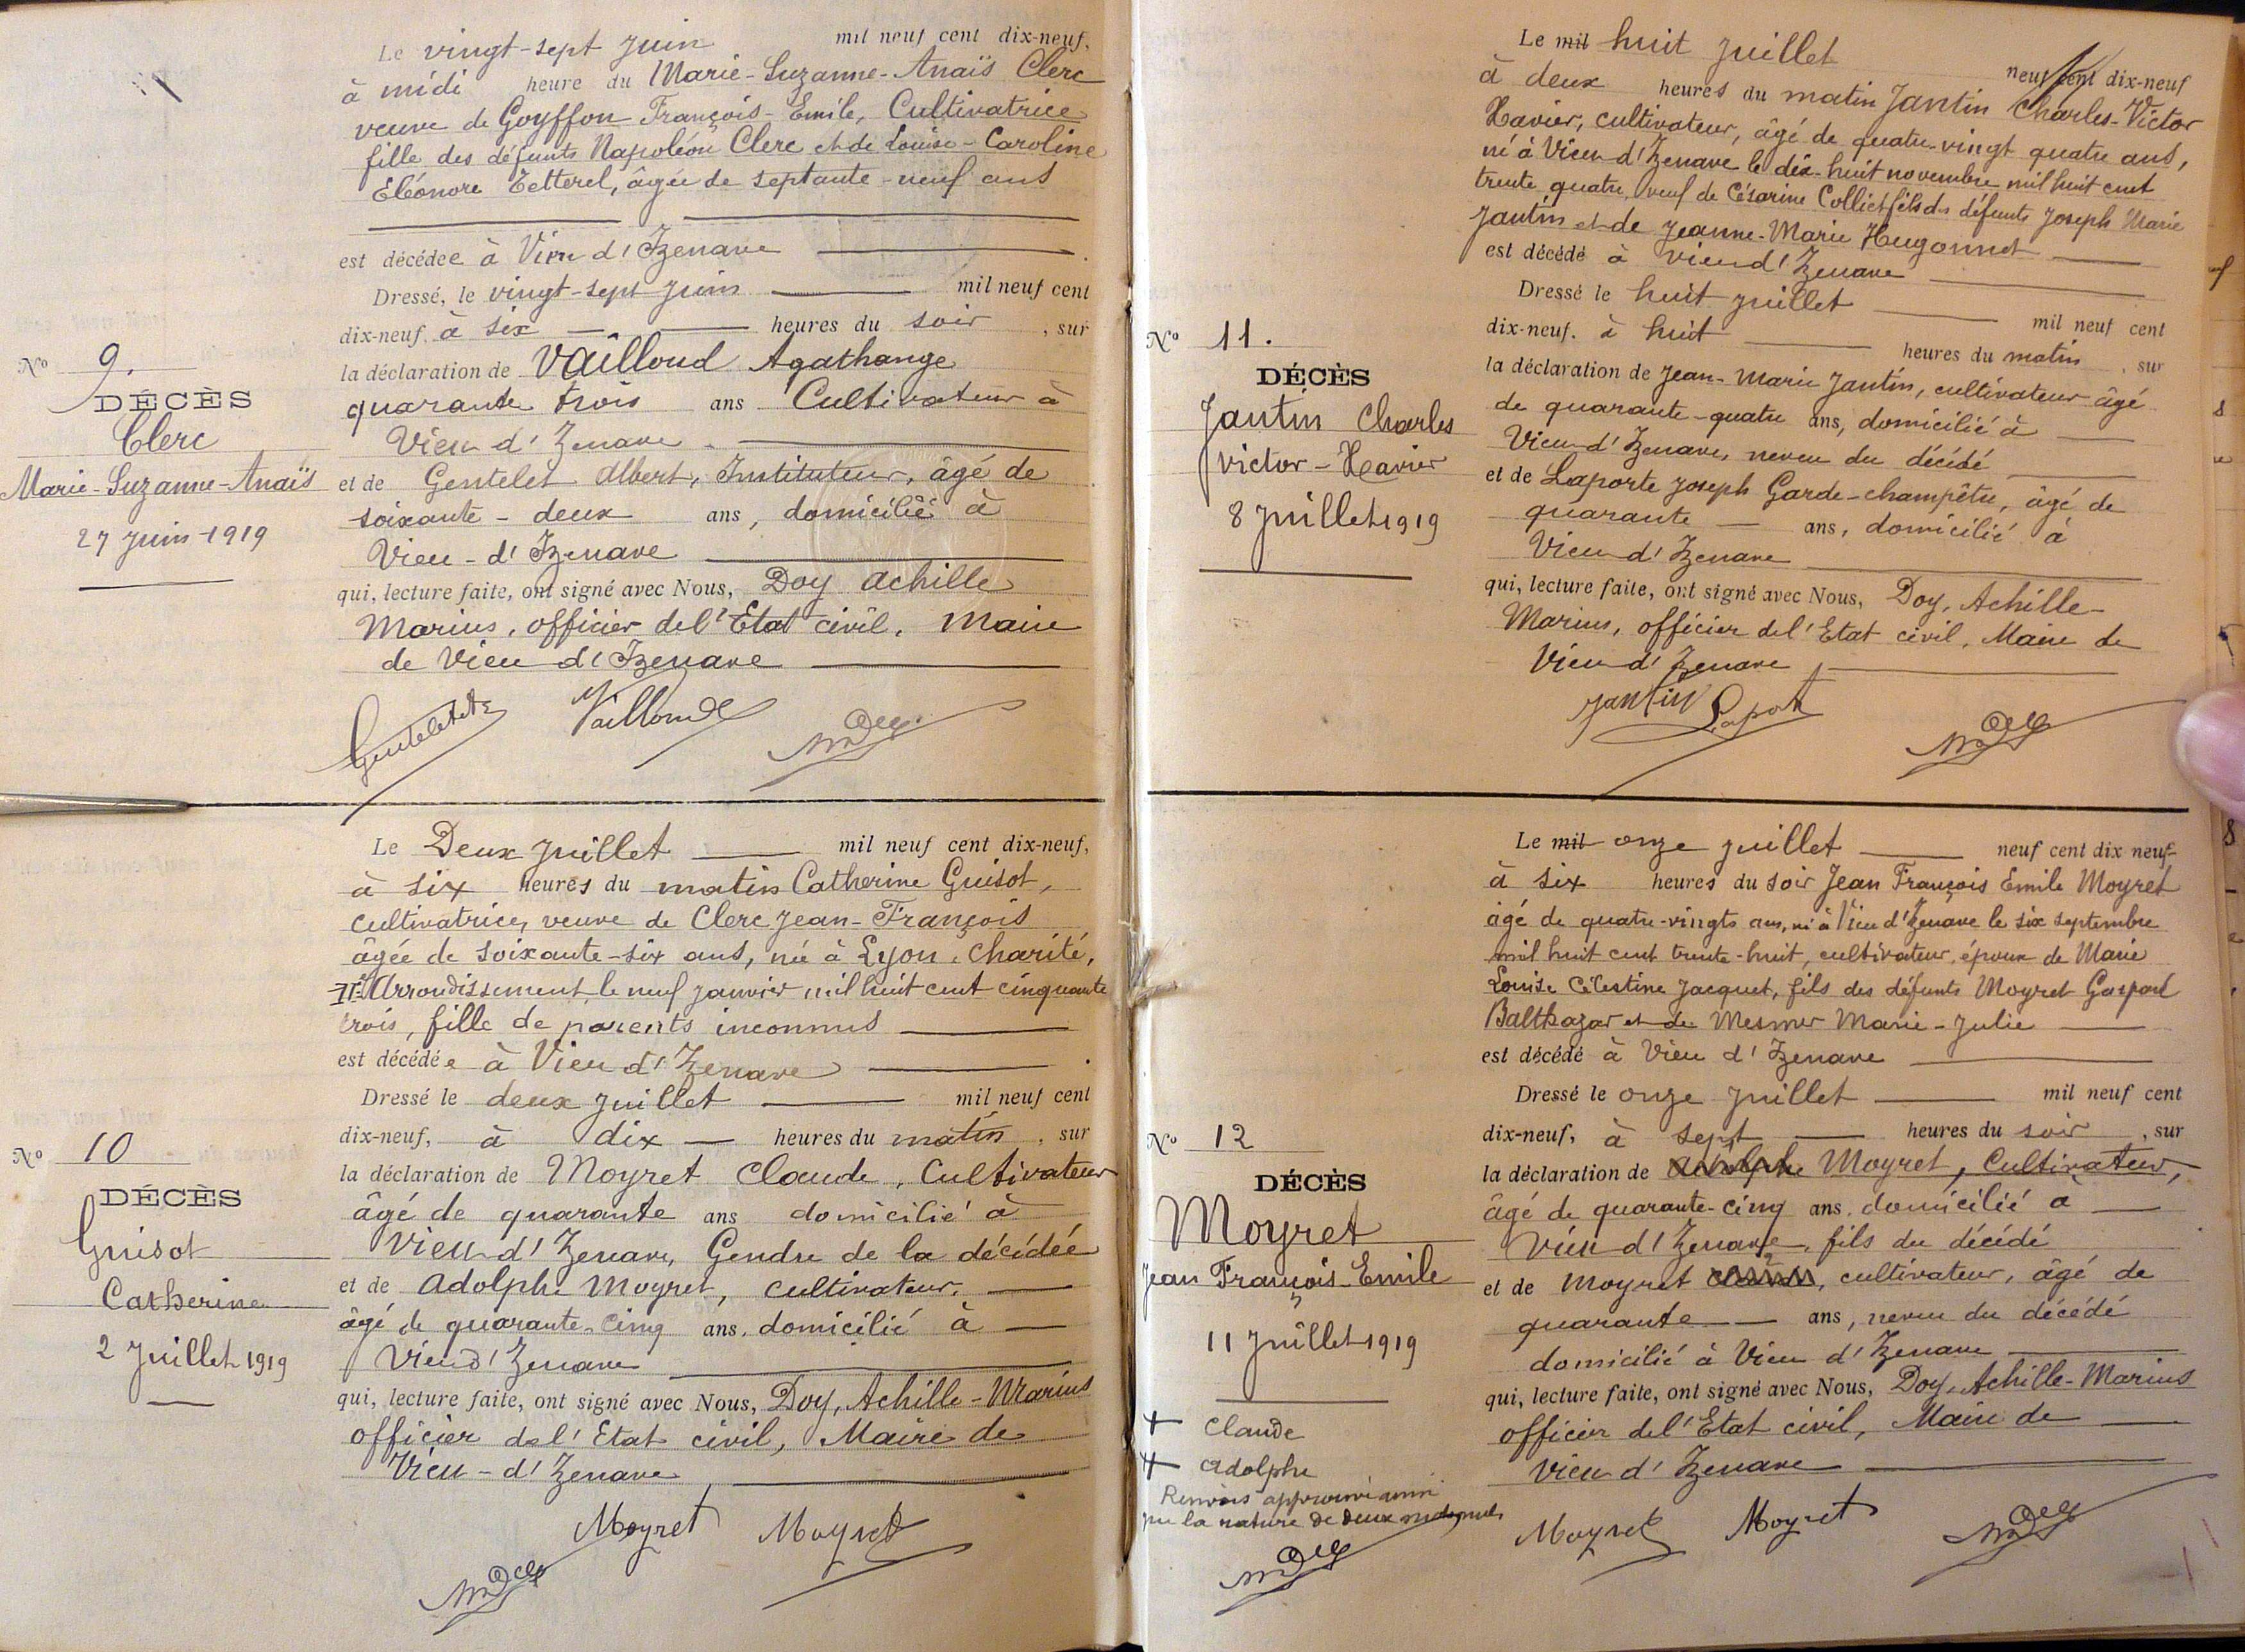 Le vingt-sept Juin mil neuf cent dix-neuf,
à midi heure du Marie-Suzanne-Anaïs Clerc
veuve de Goyffon François-Emile, Cultivatrice
fille des défunts Napoléon Clerc et de Louise-Caroline
Eléonore Tetterel, âgée de septante-neuf ans
est décédée à Vieu d'Izenave
Dressé, le vingt-sept Juin mil neuf cent
dix-neuf, à six heures du soir, sur
la déclaration de Vailloud Agathange
quarante trois ans Cultivateur à
Vieu d'Izenave
et de Gentelet Albert, Instituteur, âgé de
soixante-deux ans, domicilié à
Vieu-d'Izenave
qui, lecture faite, ont signé avec Nous, Doy Achille
Marius, officier de l'Etat civil, Maire
de Vieu d'Izenave
Vailloud
No 9.
DÉCÈS
Clerc
Marie-Suzanne-Anaïs
27 Juin 1919
Le Deux Juillet mil neuf cent dix-neuf,
à six heures du matin Catherine Guisot,
cultivatrice, veuve de Clerc Jean-François
âgée de soixante-six ans, née à Lyon, Charité,
IIe Arrondissement, le neuf janvier mil huit cent cinquante
trois, fille de parents inconnus
est décédée à Vieu d'Izenave
Dressé le deux Juillet mil neuf cent
dix-neuf, à dix heures du matin, sur
la déclaration de Moyret Claude, Cultivateur
âgé de quarante ans domicilié à
Vieu d'Izenave, Gendre de la décédée
et de Adolphe Moyret, cultivateur,
âgé de quarante-cinq ans, domicilié à
Vieu d'Izenave
qui, lecture faite, ont signé avec Nous, Doy, Achille-Marius
officier de l'Etat civil, Maire de
Vieu-d'Izenave
Moyret Moyret
No 10
DÉCÈS
Guisot
Catherine
2 Juillet 1919
Le mil huit Juillet neuf cent dix-neuf
à deux heures du matin Jantin Charles-Victor
Xavier, cultivateur, âgé de quatre-vingt quatre ans,
né à Vieu d'Izenave le dix-huit novembre mil huit cent
trente quatre, veuf de Césarine Colliet fils des défunts Joseph Marie
Jantin et de Jeanne-Marie Hugonnet
est décédé à Vieu d'Izenave
Dressé le huit Juillet mil neuf cent
dix-neuf, à huit heures du matin, sur
la déclaration de Jean-Marie Jantin, cultivateur âgé
de quarante-quatre ans, domicilié à
Vieu d'Izenave, neveu du décédé
et de Laporte Joseph Garde-champêtre, âgé de
quarante ans, domicilié à
Vieu d'Izenave
qui, lecture faite, ont signé avec Nous, Doy, Achille-
Marius, officier de l'Etat civil, Maire de
Vieu d'Izenave
Jantin
No 11.
DÉCÈS
Jantin Charles
Victor-Xavier
8 Juillet 1919
Le mil onze Juillet neuf cent dix neuf
à six heures du soir Jean François Emile Moyret
âgé de quatre-vingts ans, né à Vieu d'Izenave le six septembre
mil huit cent trente-huit, cultivateur, époux de Marie
Louise Célestine Jacquet, fils des défunts Moyret Gaspard
Balthazar et de Mesmer Marie-Julie
est décédé à Vieu d'Izenave
Dressé le onze Juillet mil neuf cent
dix-neuf, à sept heures du soir, sur
la déclaration de Moyret, Cultivateur,
âgé de quarante-cinq ans, domicilié à
Vieu d'Izenave, fils du décédé
et de Moyret, cultivateur, âgé de
quarante ans, neveu du décédé
domicilié à Vieu d'Izenave
qui, lecture faite, ont signé avec Nous, Doy, Achille-Marius
officier de l'Etat civil, Maire de
Vieu d'Izenave
Moyret Moyret
No 12
DÉCÈS
Moyret
Jean François-Emile
11 Juillet 1919
Claude
Adolphe
Renvois approuvé ainsi
la rature de deux